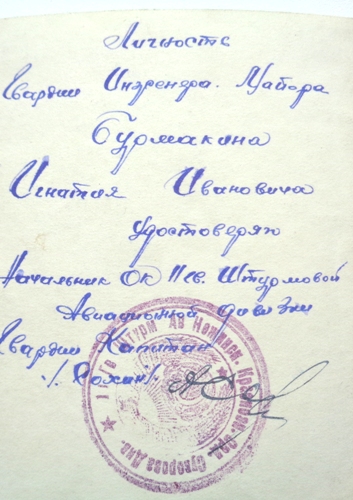 Личность
Гвардии Инженера. Майора
Бурмакина
Игнатия Ивановича
удостоверяю
Начальник ОК 11 гв. Штурмовой
Авиационной дивизии
Гвардии Капитан
Штурм Ав Краснозн. орд. Суворова Див.